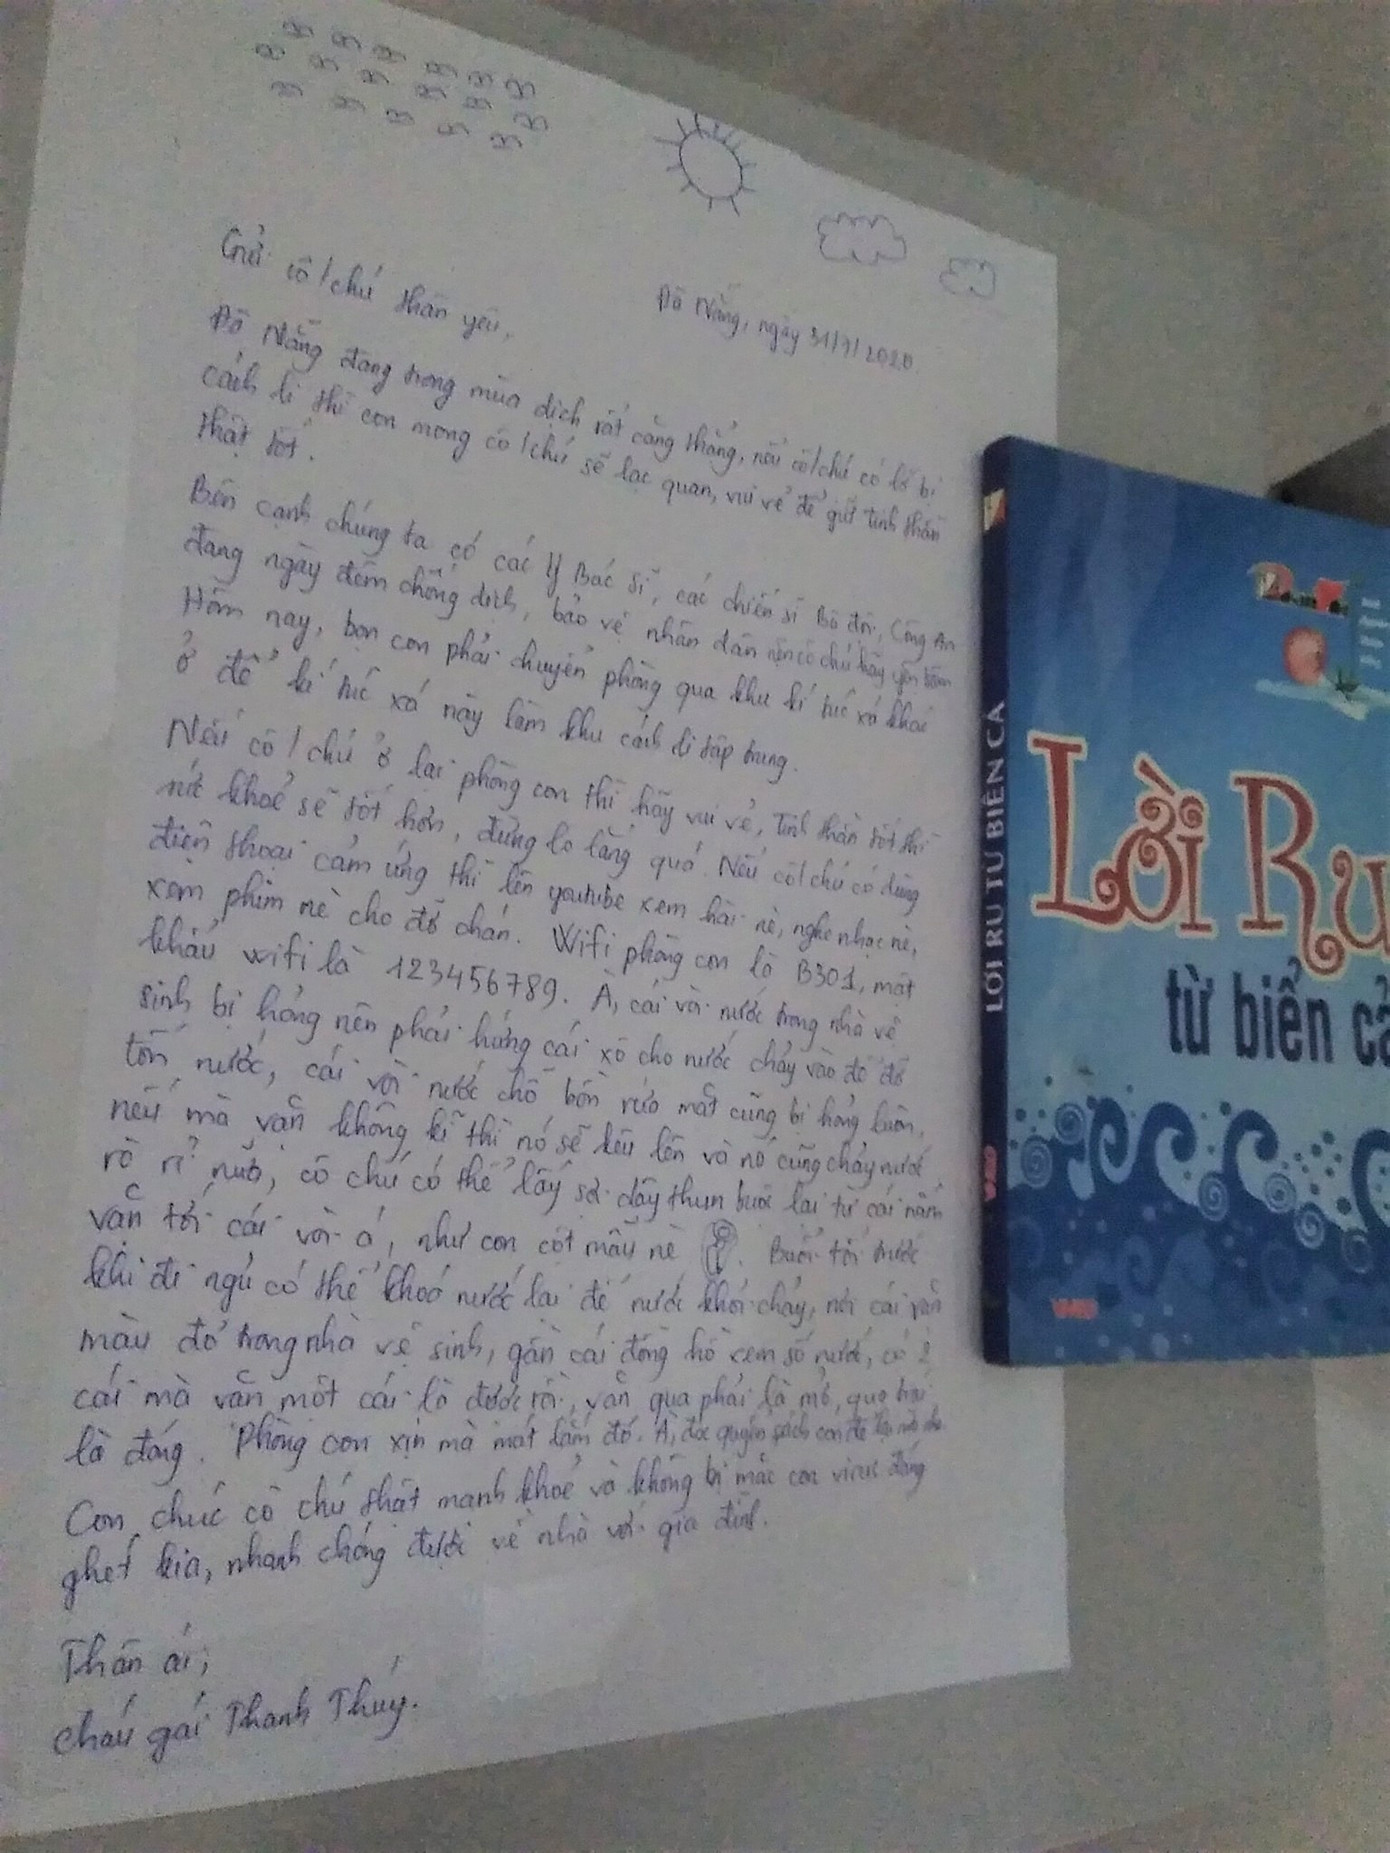 Đà Nẵng, ngày 31/7/2020.
Gửi cô/chú thân yêu,
Đà Nẵng đang trong mùa dịch rất căng thẳng, nếu cô/chú có lỡ bị
cách li thì con mong cô/chú sẽ lạc quan, vui vẻ để giữ tinh thần
thật tốt.
Bên cạnh chúng ta có các Y Bác Sĩ, các chiến sĩ Bộ đội, Công An
đang ngày đêm chống dịch, bảo vệ nhân dân nên cô chú hãy yên tâm
Hôm nay, bọn con phải chuyển phòng qua khu kí túc xá khác
ở để kí túc xá này làm khu cách li tập trung.
Nếu cô/chú ở lại phòng con thì hãy vui vẻ, tinh thần tốt thì
sức khoẻ sẽ tốt hơn, đừng lo lắng quá. Nếu cô/chú có dùng
điện thoại cảm ứng thì lên youtube xem hài nè, nghe nhạc nè,
xem phim nè cho đỡ chán. Wifi phòng con là B301, mật
khẩu wifi là 123456789. À, cái vòi nước trong nhà vệ
sinh bị hỏng nên phải hứng cái xô cho nước chảy vào đó đỡ
tốn nước, cái vòi nước chỗ bồn rửa mặt cũng bị hỏng luôn,
nếu mà vặn không kĩ thì nó sẽ kêu lên và nó cũng chảy nước
rò rỉ nữa, cô chú có thể lấy sợi dây thun buộc lại từ cái nắm
vặn tới cái vòi á, như con cột mẫu nè. Buổi tối trước
khi đi ngủ có thể khoá nước lại để nước khỏi chảy, nơi cái vặn
màu đỏ trong nhà vệ sinh, gần cái đồng hồ xem số nước, có 2
cái mà vặn một cái là được rồi, vặn qua phải là mở, qua trái
là đóng. Phòng con xịn mà mát lắm đó. À, đọc quyển sách con để lại nữa
Con chúc cô chú thật mạnh khoẻ và không bị mắc con virus đáng
ghét kia, nhanh chóng được về nhà với gia đình.
Thân ái;
Cháu gái Thanh Thúy.
LỜI RU TỪ BIỂN CẢ
Lời Ru
từ biển cả